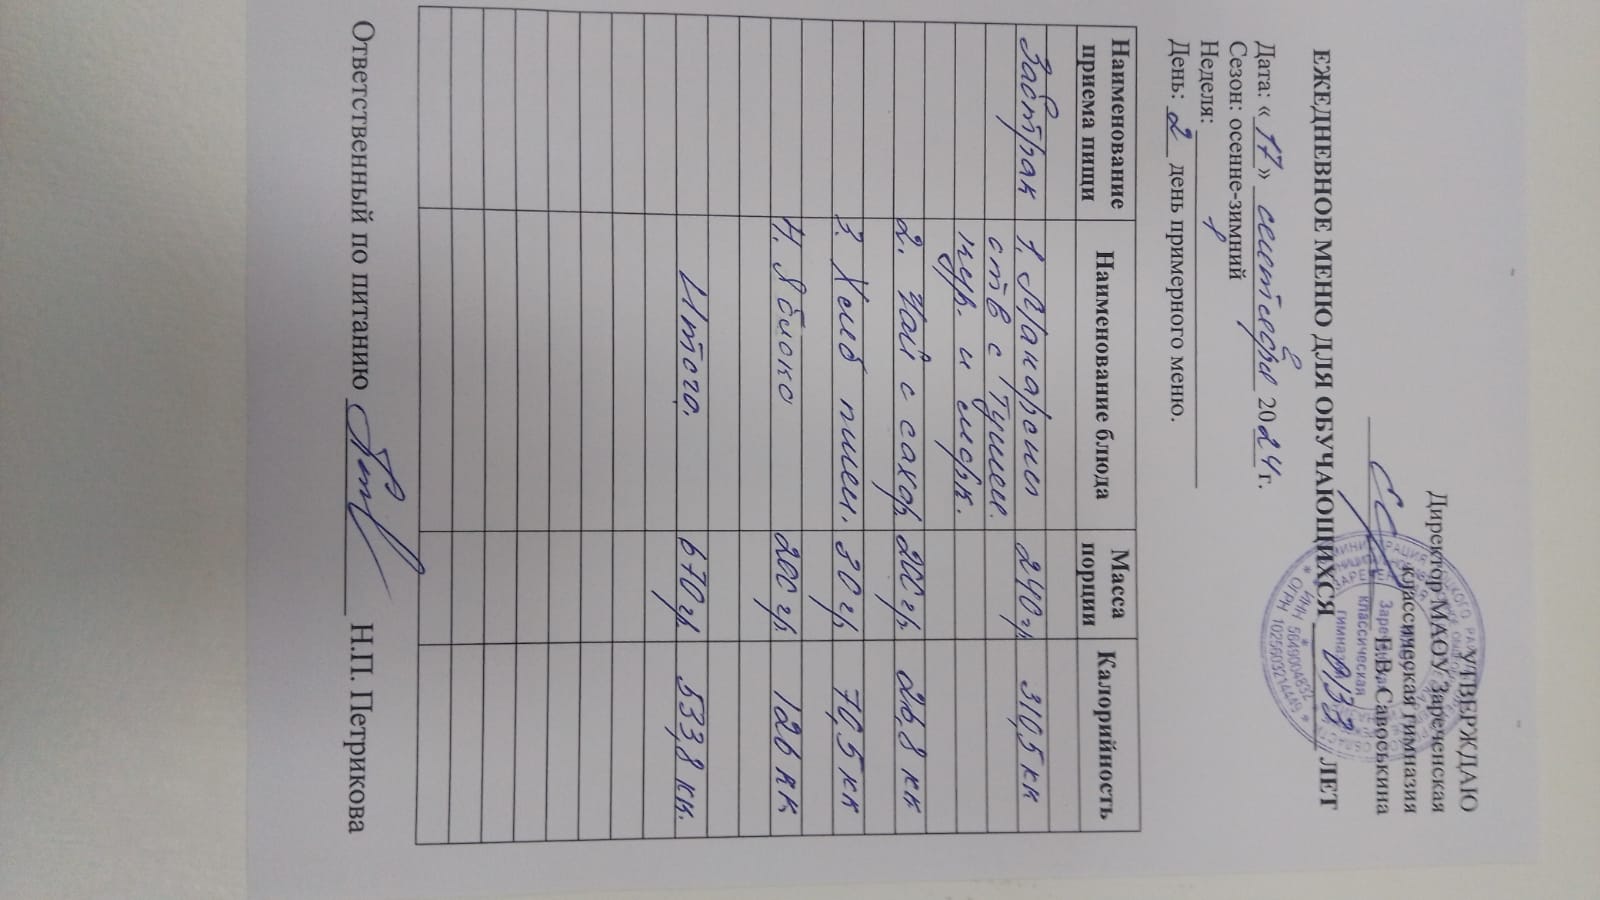 УТВЕРЖДАЮ
Директор МАОУ Зареченская
классическая гимназия
Е.В. Савоськина
ЕЖЕДНЕВНОЕ МЕНЮ ДЛЯ ОБУЧАЮЩИХСЯ ОВЗ ЛЕТ
Дата: «17» сентября 2024г.
Сезон: осенне-зимний
Неделя:
День: 2 день примерного меню.
Наименование приема пищи Наименование блюда Масса порции Калорийность
Завтрак 1. Макароны 240 гр. 310,5 кк
отв с Тушен.
кур. и морк.
2. Чай с сахар. 200 гр. 26,8 кк
3. Хлеб пшен. 30 гр. 70,5 кк
4. Яблоко 200 гр. 126 кк
Итого. 670 гр. 533,8 кк.
Ответственный по питанию Н.П. Петрикова
Зареченская
классическая
гимназия
* ИНН 5649004832 *
* ОГРН 1025603214449 *